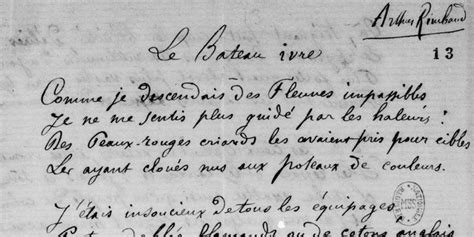 Arthur Rimbaud
13
Le Bateau ivre
Comme je descendais des Fleuves impassibles
Je ne me sentis plus guidé par les haleurs :
Des Peaux-rouges criards les avaient pris pour cibles
Les ayant cloués nus aux poteaux de couleurs.
J'étais insoucieux de tous les équipages,
de blés flamands ou de cotons anglais